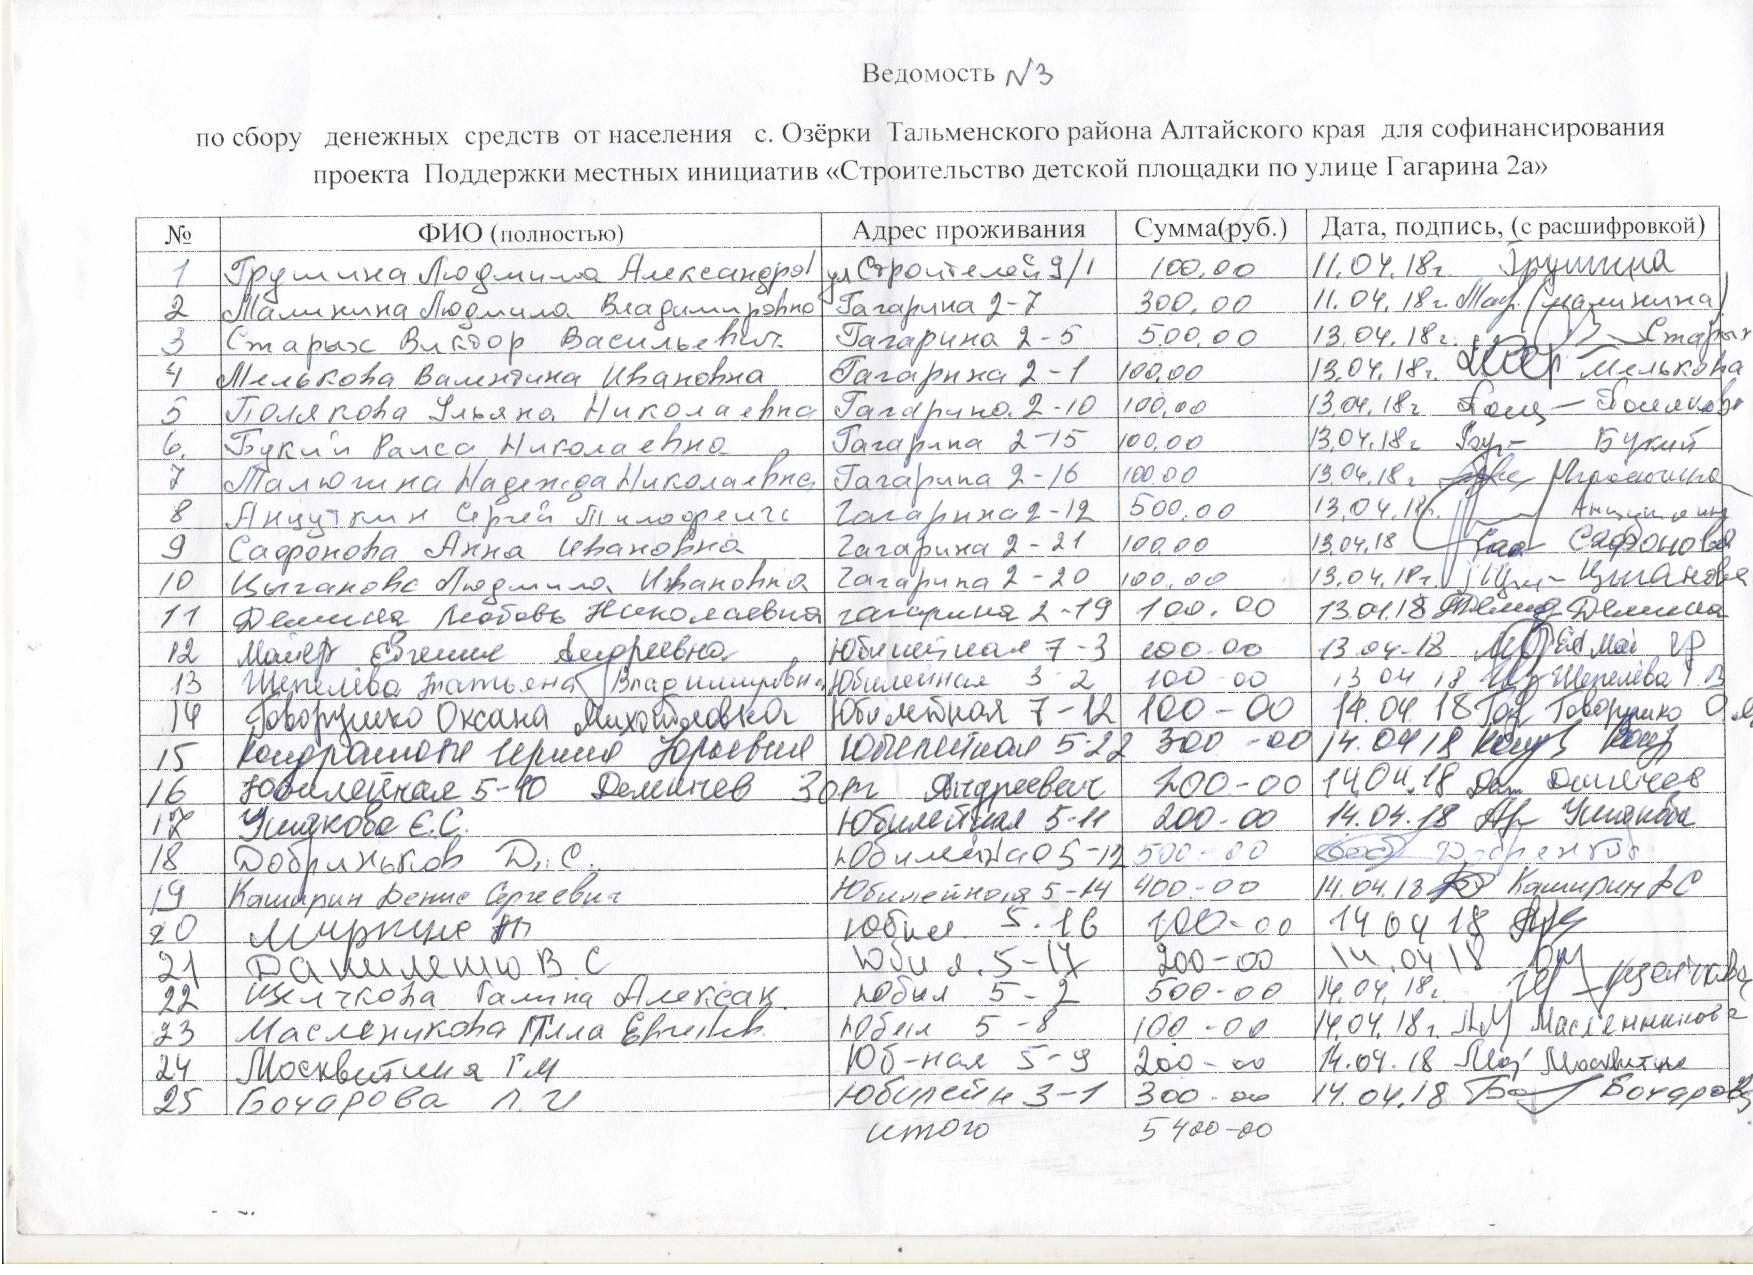 Ведомость N3
по сбору денежных средств от населения с. Озёрки Тальменского района Алтайского края для софинансирования
проекта Поддержки местных инициатив «Строительство детской площадки по улице Гагарина 2а»
№ ФИО (полностью) Адрес проживания Сумма(руб.) Дата, подпись, (с расшифровкой)
1 Грушина Людмила Александро ул Строителей 9/1 100.00 11.04.18г. Грушина
2 Малинина Людмила Владимировна Гагарина 2-7 300.00 11.04.18г. (Малинина)
3 Старых Виктор Васильевич Гагарина 2-5 500.00 13.04.18г. Старых
4 Мелькова Валентина Ивановна Гагарина 2-1 100.00 13.04.18г. Мелькова
5 Полякова Ульяна Николаевна Гагарина 2-10 100.00 13.04.18г Полякова
6. Букий Раиса Николаевна Гагарина 2-15 100.00 13.04.18г Букий
7 Малюгина Надежда Николаевна Гагарина 2-16 100.00 13.04.18г
8 Анцуткин Сергей Гагарина 2-12 500.00 13.04.18г.
9 Сафонова Анна Ивановна Гагарина 2-21 100.00 13.04.18 Сафонова
10 Цыганова Людмила Ивановна Гагарина 2-20 100.00 13.04.18г. Цыганова
11 Демина Любовь Николаевна гагарина 2-19 100.00 13.04.18 Демина
12 Майер Евгения Андреевна Юбилейная 7-3 100-00 13.04.18
13 Щепелёва Татьяна Владимировна Юбилейная 3 2 100-00 13 04 18 Щепелёва Т.В
14 Говорушко Оксана Михайловна Юбилейная 7-12 100-00 14.04.18 Говорушко О М
15 Юрьевна Юбилейная 5-22 300-00 14.04.18
16 Юбилейная 5-10 Деменчев Андреевич 200-00 14.04.18 Деменчев
17 Ушакова Е.С. Юбилейная 5-11 200-00 14.04.18 Ушакова
18 Добриньков Д. С. Юбилейная 5-12 500-00
19 Каширин Денис Сергеевич Юбилейная 5-14 400-00 14.04.18 Каширин ДС
20 Юбил. 5-16 100-00 14 04 18
21 В.С Юбил. 5-17 200-00 14.04 18
22 Щелчкова Галина Алексан Юбил 5-2 500-00 14.04.18г. Щелчкова
23 Масленикова Юбил 5-8 100-00 14.04.18г. Масленникова
24 Москвитина Г.М Юб-ная 5-9 200-00 14.04.18 Москвитина
25 Бочарова Л.И Юбилейн 3-1 300-00 14.04.18 Бочарова
итого 5400-00